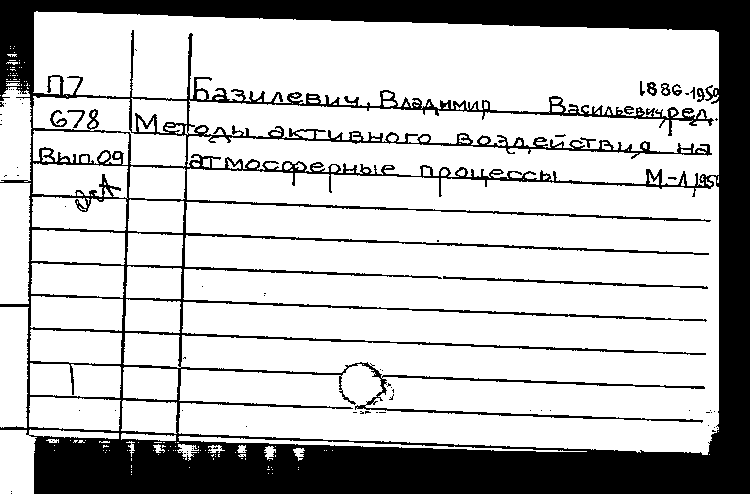 1886-1959
П7 Базилевич, Владимир Васильевич, ред.
678 Методы активного воздействия на
Вып.09 атмосферные процессы М.-Л, 195